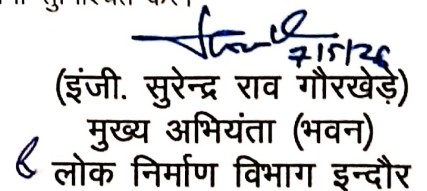 7/5/26
(इंजी. सुरेन्द्र राव गौरखेड़े)
मुख्य अभियंता (भवन)
लोक निर्माण विभाग इन्दौर